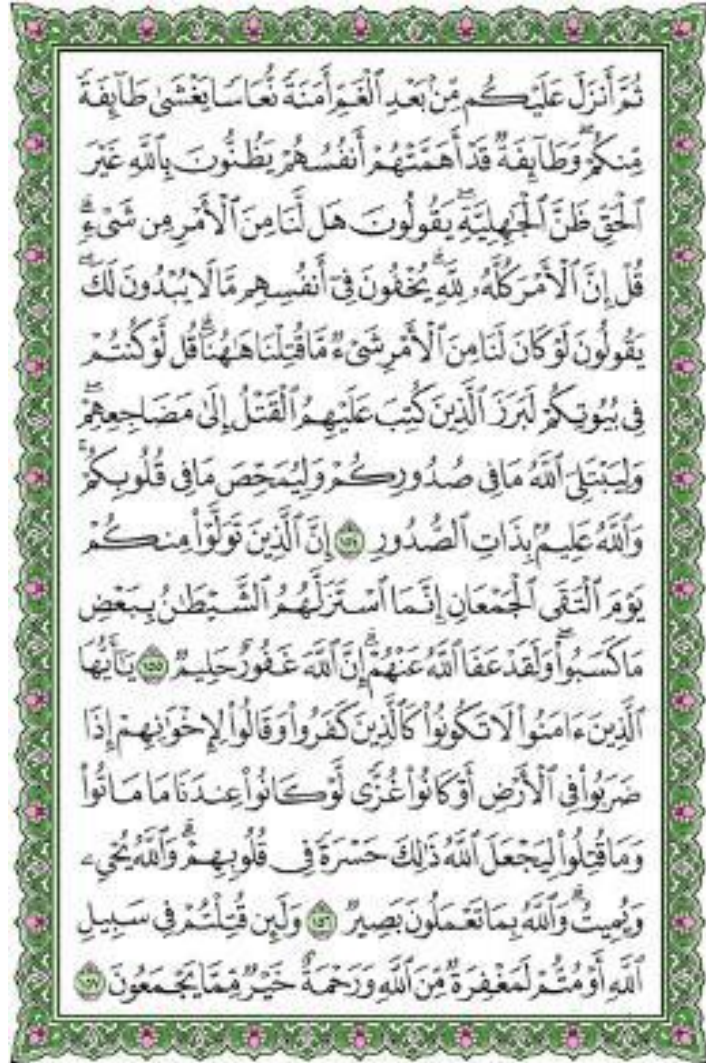 ثُمَّ أَنزَلَ عَلَيْكُم مِّنۢ بَعْدِ ٱلْغَمِّ أَمَنَةً نُّعَاسًا يَغْشَىٰ طَآئِفَةً
مِّنكُمْ ۖ وَطَآئِفَةٌ قَدْ أَهَمَّتْهُمْ أَنفُسُهُمْ يَظُنُّونَ بِٱللَّهِ غَيْرَ
ٱلْحَقِّ ظَنَّ ٱلْجَٰهِلِيَّةِ ۖ يَقُولُونَ هَل لَّنَا مِنَ ٱلْأَمْرِ مِن شَىْءٍ ۗ
قُلْ إِنَّ ٱلْأَمْرَ كُلَّهُۥ لِلَّهِ ۗ يُخْفُونَ فِىٓ أَنفُسِهِم مَّا لَا يُبْدُونَ لَكَ ۖ
يَقُولُونَ لَوْ كَانَ لَنَا مِنَ ٱلْأَمْرِ شَىْءٌ مَّا قُتِلْنَا هَٰهُنَا ۗ قُل لَّوْ كُنتُمْ
فِى بُيُوتِكُمْ لَبَرَزَ ٱلَّذِينَ كُتِبَ عَلَيْهِمُ ٱلْقَتْلُ إِلَىٰ مَضَاجِعِهِمْ ۖ
وَلِيَبْتَلِىَ ٱللَّهُ مَا فِى صُدُورِكُمْ وَلِيُمَحِّصَ مَا فِى قُلُوبِكُمْ ۗ
وَٱللَّهُ عَلِيمٌۢ بِذَاتِ ٱلصُّدُورِ ١٥٤ إِنَّ ٱلَّذِينَ تَوَلَّوْا۟ مِنكُمْ
يَوْمَ ٱلْتَقَى ٱلْجَمْعَانِ إِنَّمَا ٱسْتَزَلَّهُمُ ٱلشَّيْطَٰنُ بِبَعْضِ
مَا كَسَبُوا۟ ۖ وَلَقَدْ عَفَا ٱللَّهُ عَنْهُمْ ۗ إِنَّ ٱللَّهَ غَفُورٌ حَلِيمٌ ١٥٥ يَٰٓأَيُّهَا
ٱلَّذِينَ ءَامَنُوا۟ لَا تَكُونُوا۟ كَٱلَّذِينَ كَفَرُوا۟ وَقَالُوا۟ لِإِخْوَٰنِهِمْ إِذَا
ضَرَبُوا۟ فِى ٱلْأَرْضِ أَوْ كَانُوا۟ غُزًّى لَّوْ كَانُوا۟ عِندَنَا مَا مَاتُوا۟
وَمَا قُتِلُوا۟ لِيَجْعَلَ ٱللَّهُ ذَٰلِكَ حَسْرَةً فِى قُلُوبِهِمْ ۗ وَٱللَّهُ يُحْىِۦ
وَيُمِيتُ ۗ وَٱللَّهُ بِمَا تَعْمَلُونَ بَصِيرٌ ١٥٦ وَلَئِن قُتِلْتُمْ فِى سَبِيلِ
ٱللَّهِ أَوْ مُتُّمْ لَمَغْفِرَةٌ مِّنَ ٱللَّهِ وَرَحْمَةٌ خَيْرٌ مِّمَّا يَجْمَعُونَ ١٥٧